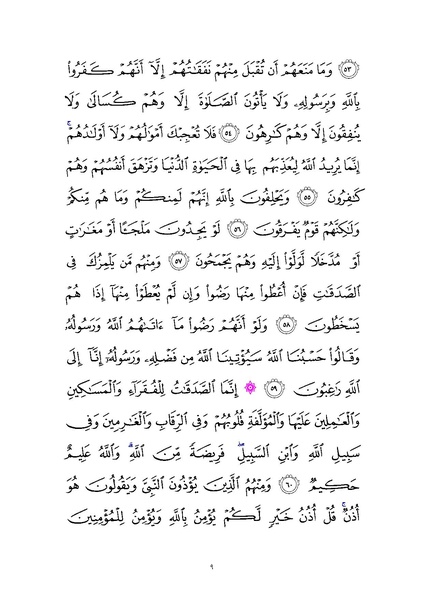 ﴿٥٣﴾ وَمَا مَنَعَهُمْ أَن تُقْبَلَ مِنْهُمْ نَفَقَٰتُهُمْ إِلَّآ أَنَّهُمْ كَفَرُوا۟
بِٱللَّهِ وَبِرَسُولِهِۦ وَلَا يَأْتُونَ ٱلصَّلَوٰةَ إِلَّا وَهُمْ كُسَالَىٰ وَلَا
يُنفِقُونَ إِلَّا وَهُمْ كَٰرِهُونَ ﴿٥٤﴾ فَلَا تُعْجِبْكَ أَمْوَٰلُهُمْ وَلَآ أَوْلَٰدُهُمْ ۚ
إِنَّمَا يُرِيدُ ٱللَّهُ لِيُعَذِّبَهُم بِهَا فِى ٱلْحَيَوٰةِ ٱلدُّنْيَا وَتَزْهَقَ أَنفُسُهُمْ وَهُمْ
كَٰفِرُونَ ﴿٥٥﴾ وَيَحْلِفُونَ بِٱللَّهِ إِنَّهُمْ لَمِنكُمْ وَمَا هُم مِّنكُمْ
وَلَٰكِنَّهُمْ قَوْمٌ يَفْرَقُونَ ﴿٥٦﴾ لَوْ يَجِدُونَ مَلْجَـًٔا أَوْ مَغَٰرَٰتٍ
أَوْ مُدَّخَلًا لَّوَلَّوْا۟ إِلَيْهِ وَهُمْ يَجْمَحُونَ ﴿٥٧﴾ وَمِنْهُم مَّن يَلْمِزُكَ فِى
ٱلصَّدَقَٰتِ فَإِنْ أُعْطُوا۟ مِنْهَا رَضُوا۟ وَإِن لَّمْ يُعْطَوْا۟ مِنْهَآ إِذَا هُمْ
يَسْخَطُونَ ﴿٥٨﴾ وَلَوْ أَنَّهُمْ رَضُوا۟ مَآ ءَاتَىٰهُمُ ٱللَّهُ وَرَسُولُهُۥ
وَقَالُوا۟ حَسْبُنَا ٱللَّهُ سَيُؤْتِينَا ٱللَّهُ مِن فَضْلِهِۦ وَرَسُولُهُۥٓ إِنَّآ إِلَى
ٱللَّهِ رَٰغِبُونَ ﴿٥٩﴾ ۞ إِنَّمَا ٱلصَّدَقَٰتُ لِلْفُقَرَآءِ وَٱلْمَسَٰكِينِ
وَٱلْعَٰمِلِينَ عَلَيْهَا وَٱلْمُؤَلَّفَةِ قُلُوبُهُمْ وَفِى ٱلرِّقَابِ وَٱلْغَٰرِمِينَ وَفِى
سَبِيلِ ٱللَّهِ وَٱبْنِ ٱلسَّبِيلِ ۖ فَرِيضَةً مِّنَ ٱللَّهِ ۗ وَٱللَّهُ عَلِيمٌ
حَكِيمٌ ﴿٦٠﴾ وَمِنْهُمُ ٱلَّذِينَ يُؤْذُونَ ٱلنَّبِىَّ وَيَقُولُونَ هُوَ
أُذُنٌ ۚ قُلْ أُذُنُ خَيْرٍ لَّكُمْ يُؤْمِنُ بِٱللَّهِ وَيُؤْمِنُ لِلْمُؤْمِنِينَ
٩